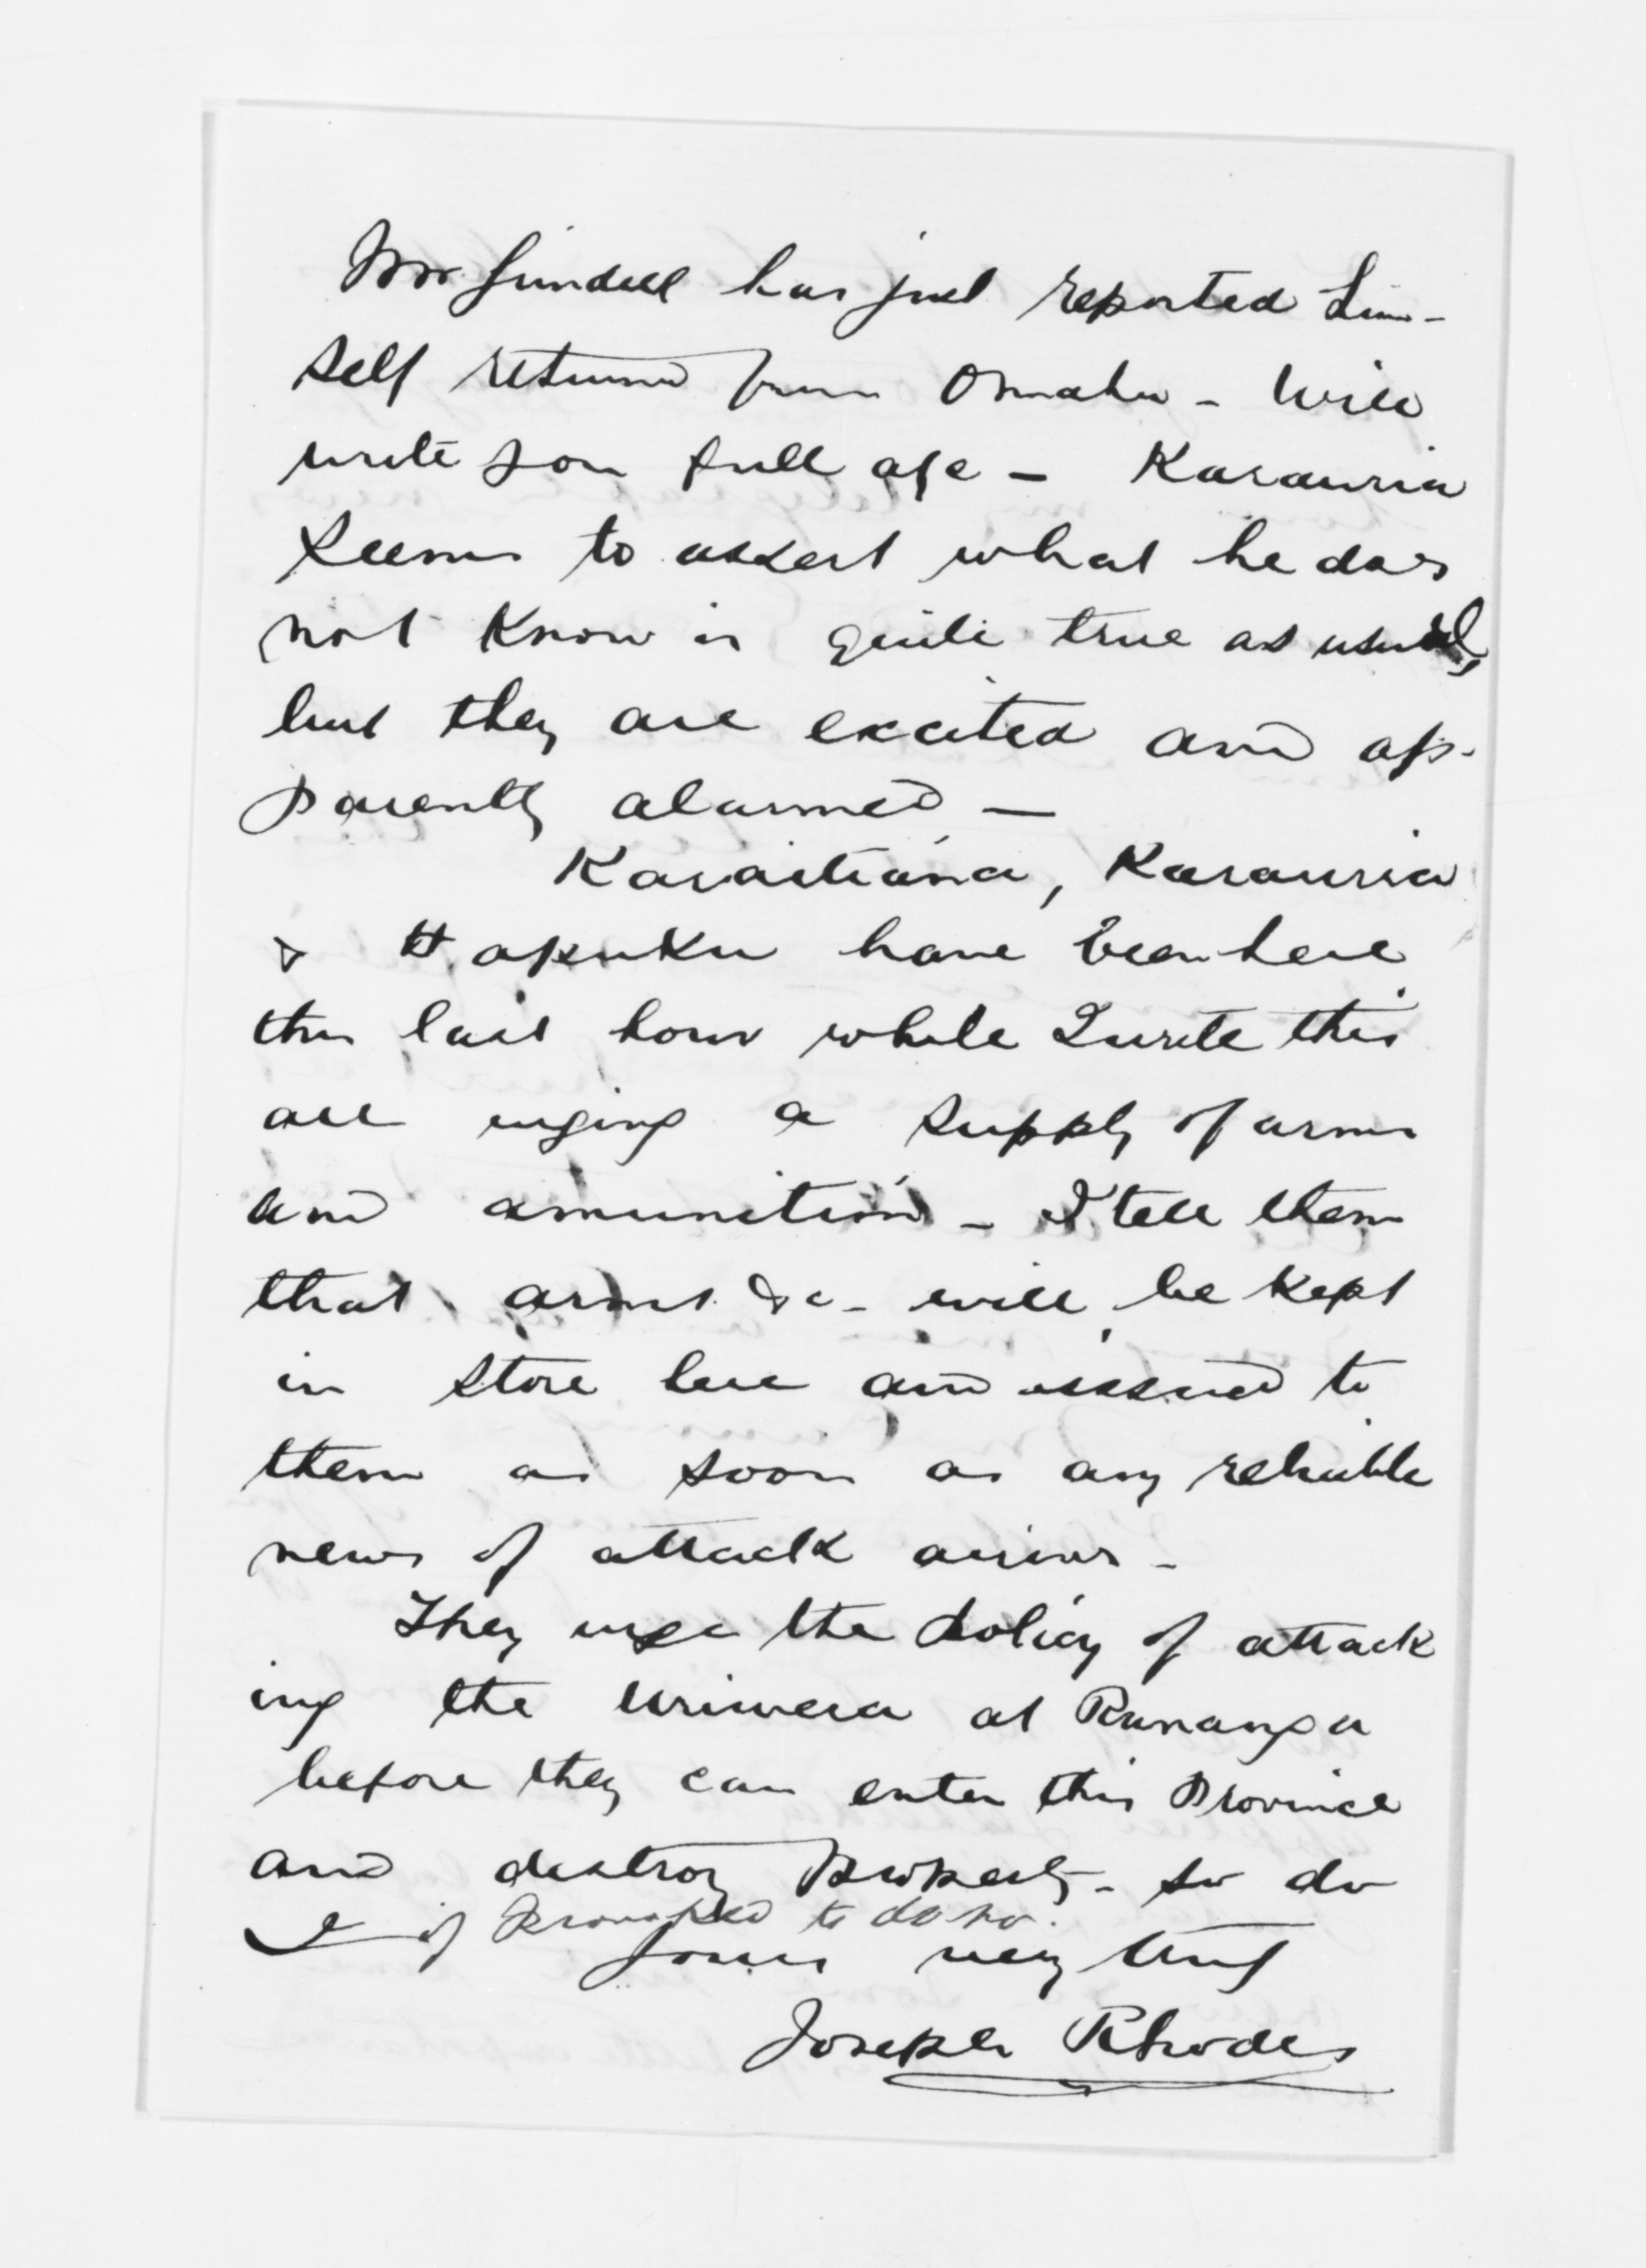 Mr Grindell has just reported him-
self returned from Omahu - Will
write you full
Karauria
seems to assert what he does
not know is quite true as usual,
but they are excited and ap-
parently alarmed -
Karaitiana, Karauria
& Hapuku have been here
this last hour while I write this
all urging a supply of arms
and amunition - I tell them
that arms &c - will be kept
in store here and issued to
them as soon as any reliable
news of attack arrives -
They urge the policy of attack
ing the Uriwera at Runanga
before they can enter this Province
and destroy property - so do
I - if prompted to do so.
Yours very truly
Joseph Rhodes